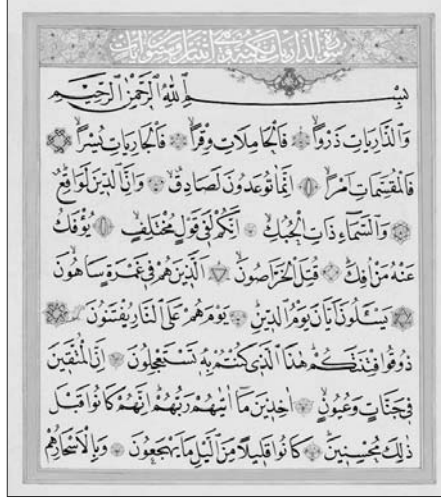 سورة الذاريات مكية وهي ستون آيات
بِسْمِ اللّٰهِ الرَّحْمٰنِ الرَّحِيمِ
وَالذَّارِيَاتِ ذَرْوًا فَالْحَامِلَاتِ وِقْرًا فَالْجَارِيَاتِ يُسْرًا
فَالْمُقَسِّمَاتِ اَمْرًا اِنَّمَا تُوعَدُونَ لَصَادِقٌ وَاِنَّ الدِّينَ لَوَاقِعٌ
وَالسَّمَاءِ ذَاتِ الْحُبُكِ اِنَّكُمْ لَفِى قَوْلٍ مُخْتَلِفٍ يُؤْفَكُ
عَنْهُ مَنْ اُفِكَ قُتِلَ الْخَرَّاصُونَ اَلَّذِينَ هُمْ فِى غَمْرَةٍ سَاهُونَ
يَسْـَٔلُونَ اَيَّانَ يَوْمُ الدِّينِ يَوْمَ هُمْ عَلَى النَّارِ يُفْتَنُونَ
ذُوقُوا فِتْنَتَكُمْ هٰذَا الَّذِى كُنْتُمْ بِهِ تَسْتَعْجِلُونَ اِنَّ الْمُتَّقِينَ
فِى جَنَّاتٍ وَعُيُونٍ اٰخِذِينَ مَا اٰتٰيهُمْ رَبُّهُمْ اِنَّهُمْ كَانُوا قَبْلَ
ذٰلِكَ مُحْسِنِينَ كَانُوا قَلِيلًا مِنَ الَّيْلِ مَا يَهْجَعُونَ وَبِالْاَسْحَارِ هُمْ